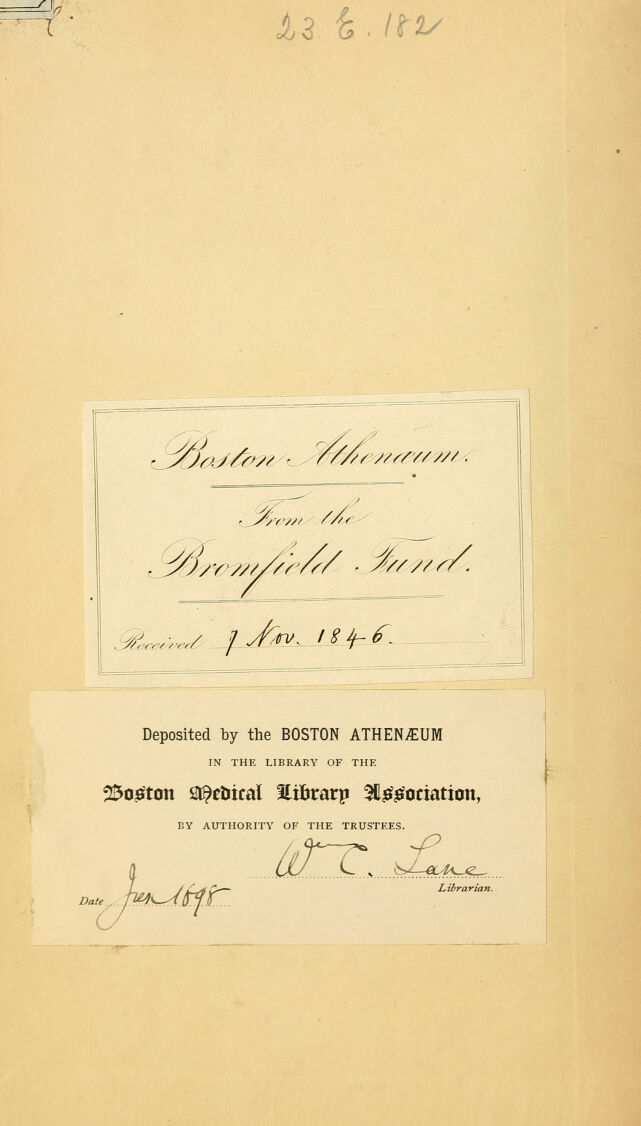 23. E. 182
Boston Athenæum.
From the
Bromfield Fund.
Received 7 Nov. 1846.
Deposited by the BOSTON ATHENÆUM
IN THE LIBRARY OF THE
Boston Medical Library Association,
BY AUTHORITY OF THE TRUSTEES.
Wm C. Lane
Librarian.
Date 1898